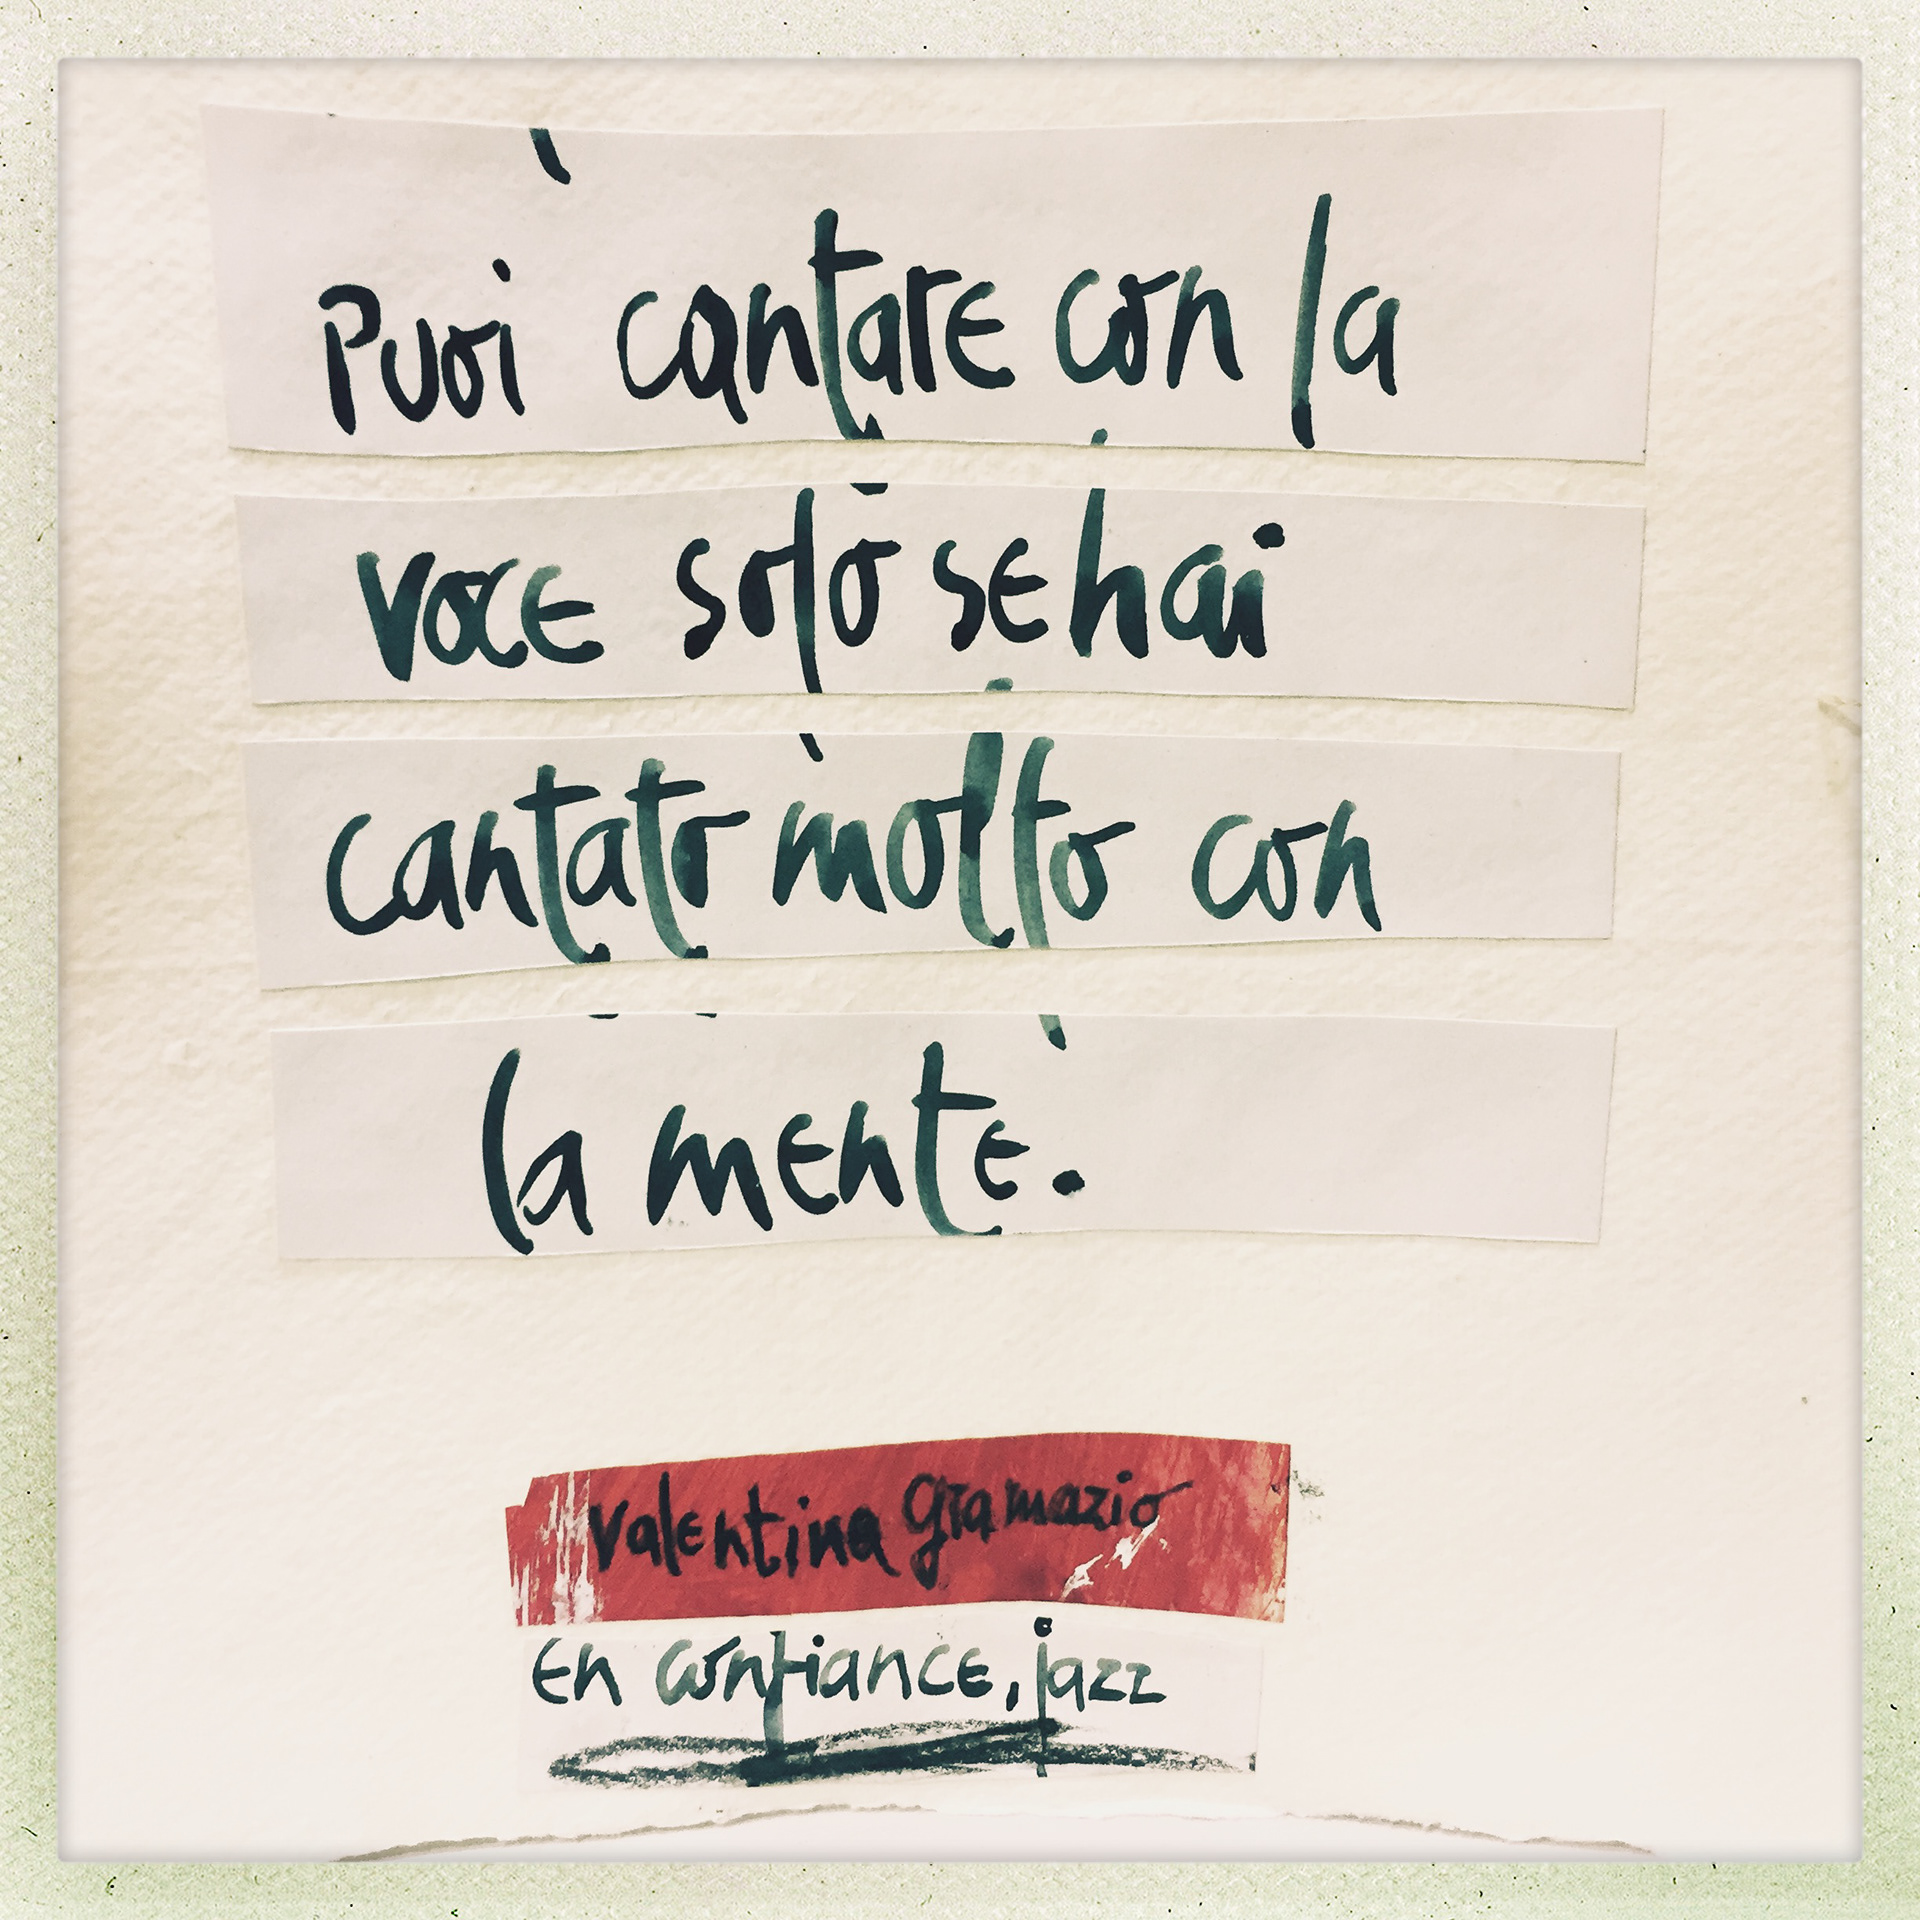 Puoi cantare con la
voce solo se hai
cantato molto con
la mente.
Valentina Gramazio
En confiance, jazz